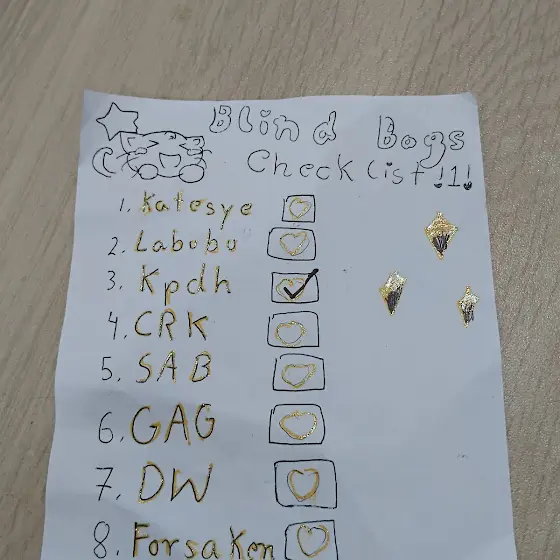 Blind Bags
Check list !1!
1. Katesye
2. Labubu
3. Kpdh
4. CRK
5. SAB
6. GAG
7. DW
8. Forsaken